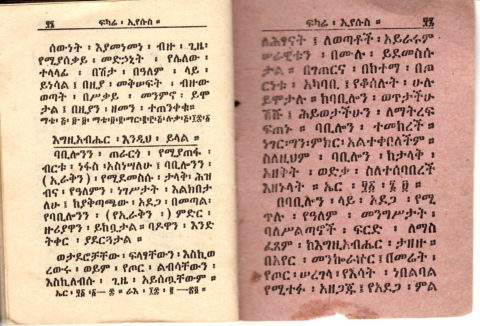 ፍካሬ ፡ ኢየሱስ ።
ሰውነት ፡ እያመነመነ ፡ ብዙ ፡ ጊዜ፡
የሚያሰቃይ ፡ መድኃኒት ፡ የሌለው ፡
ተላላፊ ፡ በሽታ ፡ በዓለም ፡ ላይ ፡
ይነሳል ፤ በዚያ ፡ መቅሠፍት ፡ ብዙው
ወጣት ፡ በሥቃይ ፡ መንምኖ ፡ ይሞ
ታል ፤ በዚያን ፡ ዘመን ፡ ተጠንቀቁ።
እግዚአብሔር ፡ እንዲህ ፡ ይላል ።
ባቢሎንን ፡ ጠራርጎ ፡ የሚያጠፋ ፡
ብርቱ ፡ ነፋስ ፡አስነሣለሁ ፤ ባቢሎንን ፡
(ኢራቅን) ፡ የሚደመስሱ ፡ ታላቅ፡ ሕዝ
ብና ፡ የዓለምን ፡ ነግሥታት ፡ እልክበታ
ለሁ ፤ ከያቅጣጫው ፡ ኦደጋ ፡ በመጣል፡
የባቢሎንን ፡ (የኢራቅን) ፡ ምድር ፡
ዙሪያዋን ፡ ይከበባታል ፡ ባዶዋን ፡ እንድ
ትቀር ፡ ያደርጓታል ።
ወታደሮቻቸው ፡ ፍላፃቸውን ፡ እስኪወ
ረውሩ ፡ ወይም ፡ የጦር ፡ ልብሳቸውን ፡
እስኪለብሱ ፡ ጊዜ ፡ አይሰጧቸውም ።
ፍካሬ ፡ ኢየሱስ ።
ለሕፃናት ፤ ለወጣቶች ፡ አይራሩም
ሠራዊቱን ፡ በሙሉ ፡ ይደመስሱ
ታል ። በግጠርና ፡ በከተማ ፡ በጦ
ርነቱ ፡ አካባቢ ፡ የቆሰሉት ፡ ሁሉ
ይሞታሉ ። ከባቢሎን ፡ ወጥታችሁ
ሽሹ ፤ ሕይወታችሁን ፡ ለማትረፍ
ፍጠኑ ። ባቢሎን ፡ ተመከረች ።
ነገር፡ግን፡ምክር፡ አልተቀበለችም።
ስለዚህም ፡ ባቢሎን ፡ ከታላቅ ፡
አዘቅት ፡ ወድቃ ፡ ስለተሰባበረች
እዘኑላት ። ኤር ፡
በባቢሎን ፡ ላይ ፡ ኦደጋ ፡ የሚ
ጥሉ ፡ የዓለም ፡ መንግሥታት ፡
ባለሥልጣኖች ፡ ፍርድ ፡ ለማስ
ፈጸም ፡ ከእግዚአብሔር ፡ ታዘዙ ።
በአየር ፡ መንኰራኵር ፤ በመሬት ፡
የጦር ፡ ሠረገላ ፡ የእሳት ፡ ነበልባል
የሚተፉ ፡ አዘጋጁ ፤ የአደጋ ፡ ምል